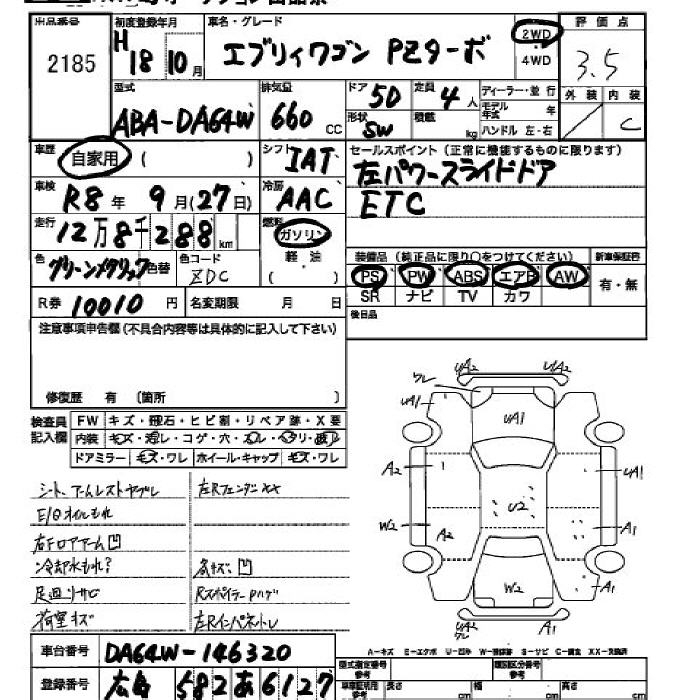 出品番号 初度登録年月 車名・グレード 評価点
2185 H18 10月 エブリィワゴン PZターボ 2WD 4WD 3.5
外装 内装
C
型式 排気量 ドア 定員 ディーラー・並行
ABA-DA64W 660 CC 5D 4人 モデル年式 年
形状 積載 ハンドル 左・右
SW kg
車歴 自家用 ( ) シフト IAT セールスポイント(正常に機能するものに限ります)
左パワースライドドア
車検 R8年 9月(27日) 冷房 AAC ETC
走行 12万8千288km 燃料 ガソリン
軽油 ( )
色 グリーンメタリック 色替 色コード ZDC
装備品(純正品に限り○をつけてください) 新車保証書
PS PW ABS エアB AW 有・無
SR ナビ TV カワ
R券 10010円 名変期限 月 日
後日品
注意事項申告欄(不具合内容等は具体的に記入して下さい)
修復歴 有 〔箇所 〕
検査員記入欄
FW キズ・飛石・ヒビ割・リペア跡・X要
内装 キズ・汚レ・コゲ・穴・スレ・ヘタリ・破レ
ドアミラー キズ・ワレ ホイール・キャップ キズ・ワレ
シート、アームレストヤブレ 左Rフェンダー XX
E/Gオイルもれ
右Fロアアーム凹
冷却水もれ? 各キズ、凹
足廻りサビ Rスポイラー Pハゲ
荷室キズ 左Rインパネトレ
UA2 UA2
ワレ
UA1 UA1 UA1
A2 UA1
U2
W2 A2 A1
W2 A1
UA2 ワレ A1
A-キズ E-エクボ U-凹 W-補修跡 S-サビ C-腐食 XX-交換済
車台番号 DA64W-146320
登録番号 広島 582 あ 6127
型式指定番号 参考 類別区分番号 参考
車庫証明用 参考 長さ cm 幅 cm 高さ cm